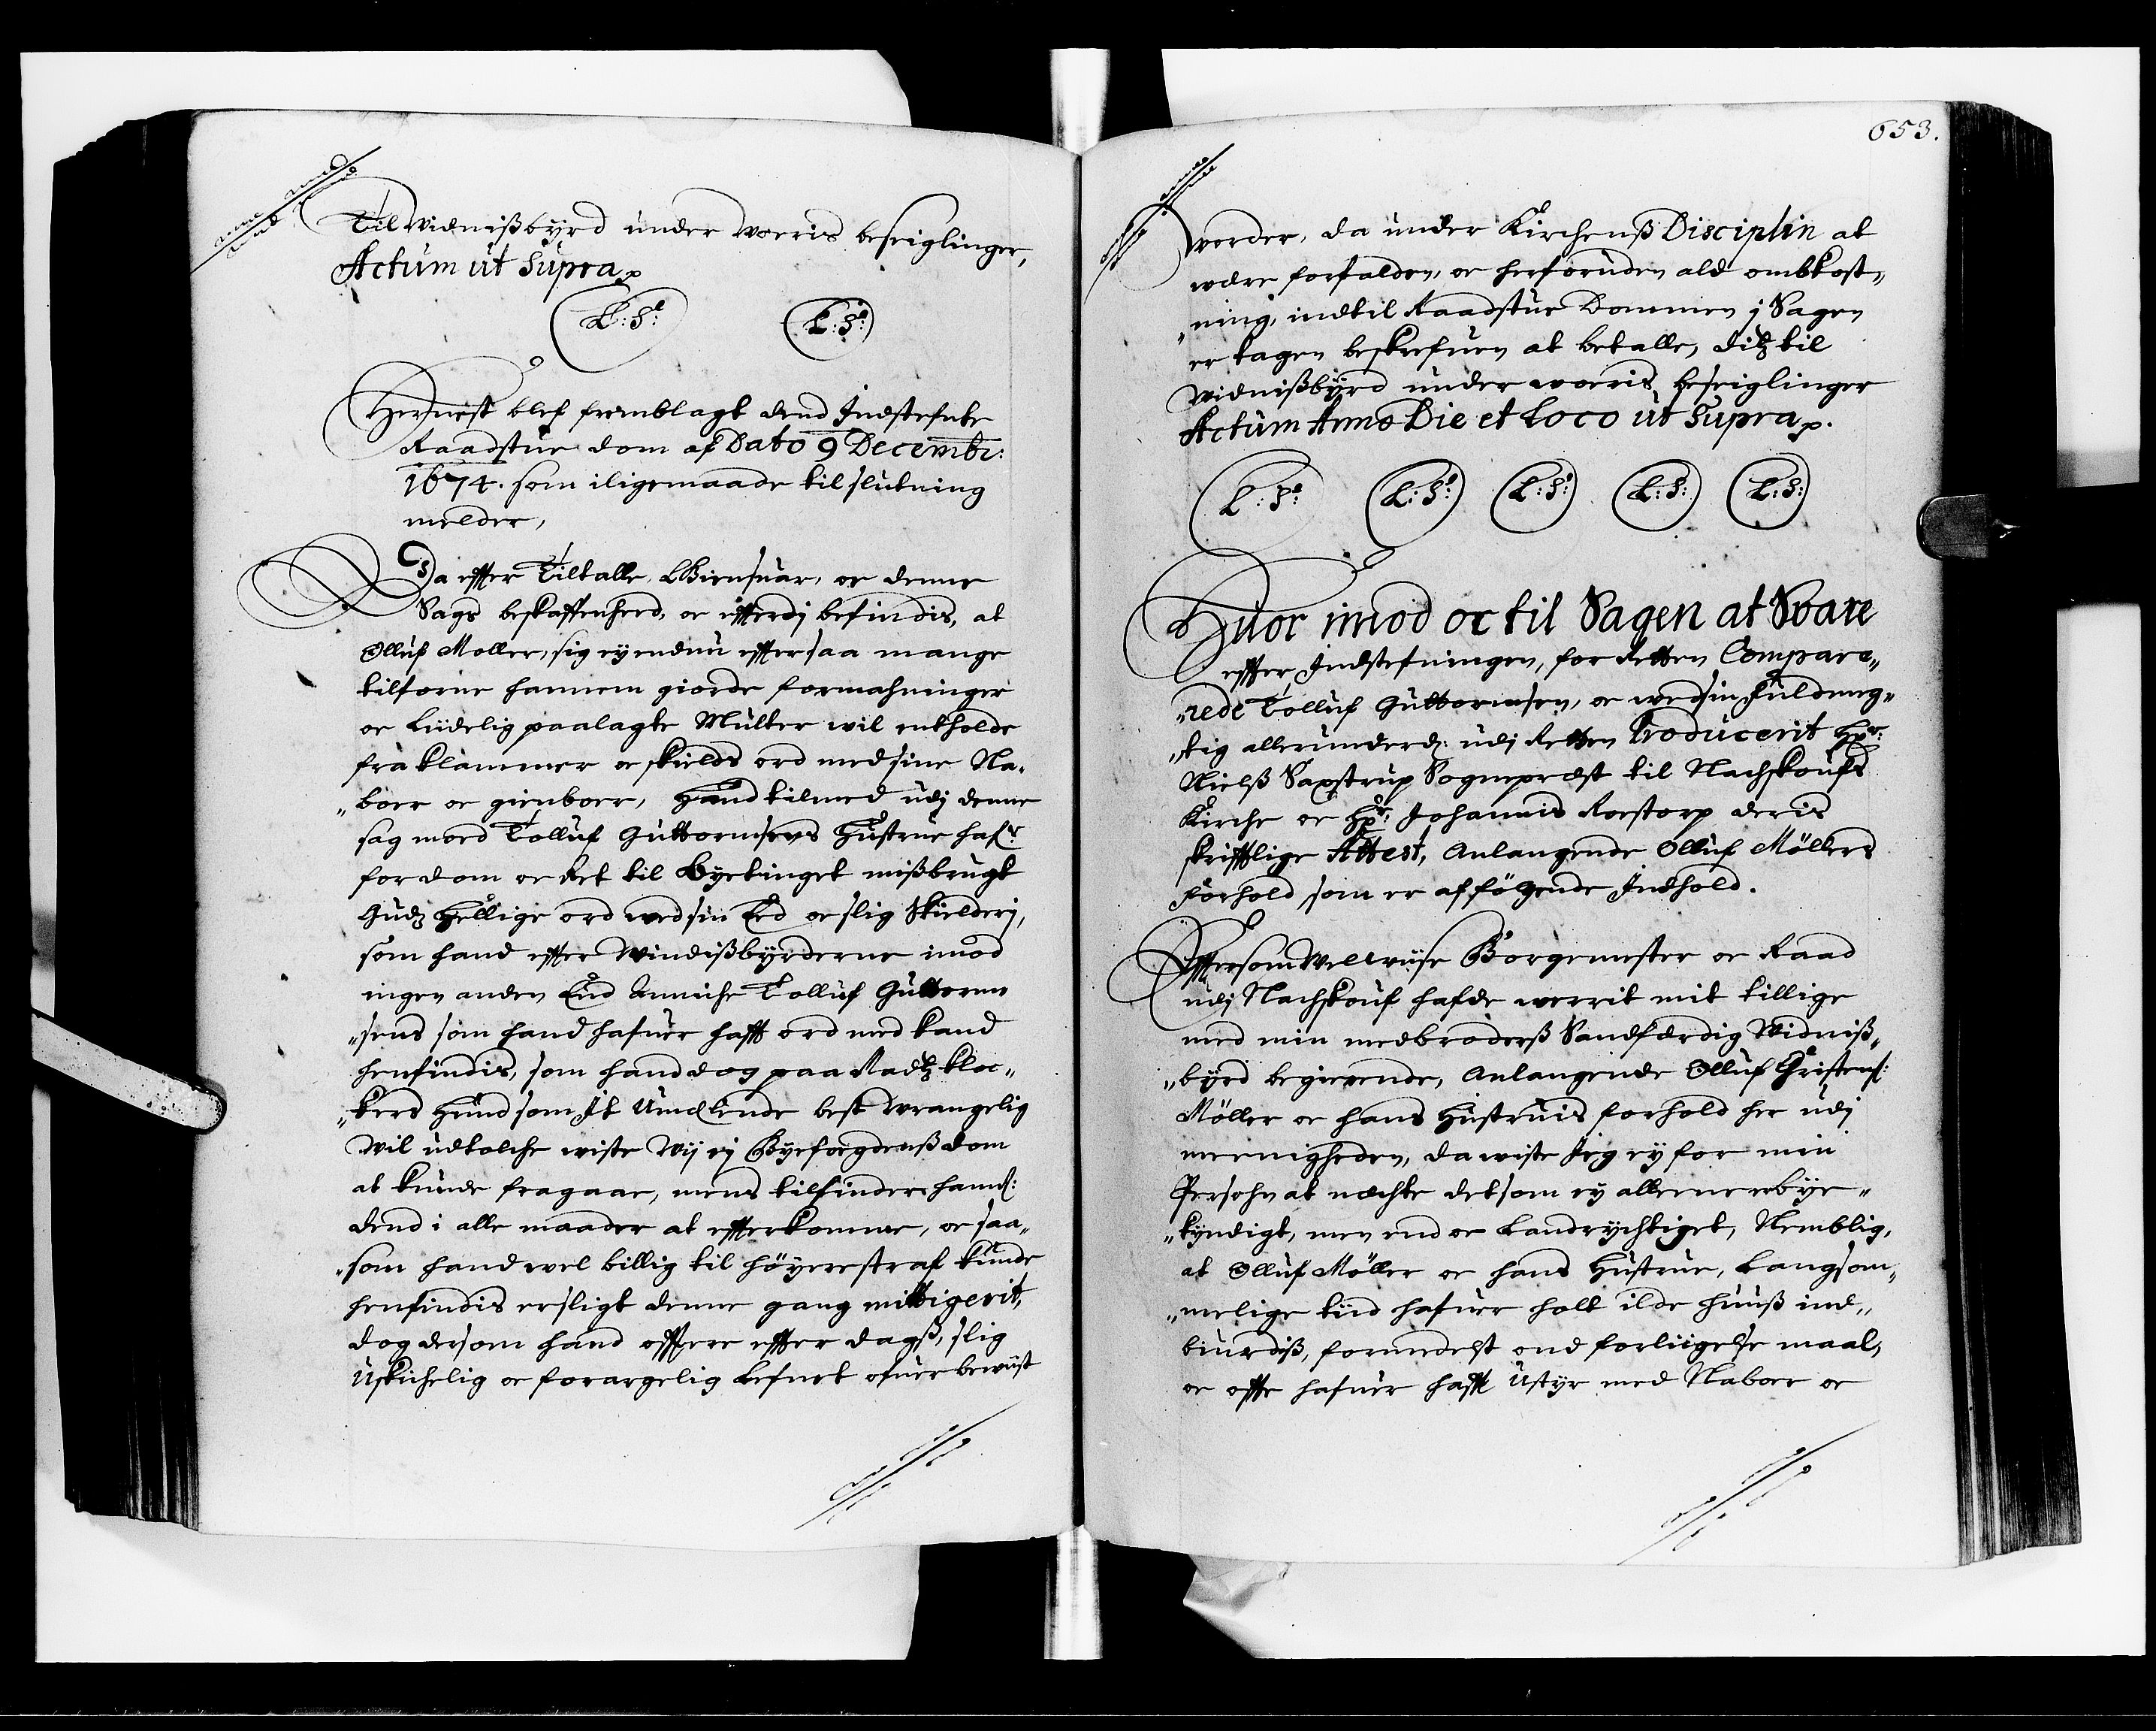 Til Vidnißbyrd under Voris beseiglinger,
Actum ut Supra
L: S:
L: S:
Hernest blef fremblagt dend Indstefnte
Raadstue dom af Dato 9 Decembr:
1674. som iligemaade til slutning
melder,
Da effter Tiltalle, Giensuar, oc denne
Sags beskaffenheed, oc efterdj befindis, at
Olluf Moller, sig ey endnu effter saa mange
tilforne hannem giorde formahninger
oc Liidelig paalagte Mulkter wil entholde
fra klammer oc skields ord med sine Na„
„boer oc gienboer, Hand tilmed udj denne
sag moed Tolluf Guttormsens Hustrue hafr
for dom oc Ret til Byetinget mißbrugt
Gudz Hellige ord wed sin Eed oc slig Skielderj,
som hand effter Windißbyrderne imod
ingen anden End Anniche Tolluf Guttorm
„sens som hand hafuer hafft ord med kand
henfindis, som hand dog paa Radtz kloc„
„kers Hund som It Umælende best wrangelig
Vil udtolche wiste Vij ej Byefogdenß dom
at kunde fragaae, mens tilfinder hannem:
dend i alle maader at effterkomme, oc saa„
„som hand vel billig til höyere straf kunde
henfindis er sligt denne gang mittigerit,
dog dersom hand offtere effter dagß, slig
Uskichelig oc forargelig Lefnet ofuerbewiist
653.
vorder, da under Kirchenß Disciplin at
være forfalden, oc herforuden ald ombkost„
„ning, indtil Raadstue Dommen j Sagen
er tagen beskrefuen at betalle, ditz til
Vidnißbyrd under worris beseiglinger
Actum Anno Die et Loco ut Supra.
L: S:
L: S:
L: S:
L: S:
L: S:
Huor imod oc til Sagen at Svare
effter Indstefningen, for Retten Compare„
„rede Tolluf Guttormsen, oc wed sin Fuldmeg„
„tig allerunderd: udj Retten Producerit Hr:
Nielß Saxstrup Sognepræst til Nachskoufs
Kirche oc Hr: Johannis Roestorp deris
skrifftlige Attest, Anlangende Olluf Möllers
Forhold, som er af fölgende Indhold.
Efftersom Velwiise Borgemester oc Raad
udj Nachskouf hafde werrit mit tillige
med min medbroderß Sandfærdig Vidniß„
„byrd begierende, Anlangende Olluf Christens:
Möller oc hans Hustruis forhold her udj
meenigheden, da wiste Jeg ey for min
Persohn at nechte det som ey alleene er bye„
„kyndigt, men end oc Landrychtiget, Nemblig,
at Olluf Möller oc hans Hustrue, Langsom„
„melige tiid hafuer holt ilde huuß ind„
biurdiß, formedelst ond forliigelse maal,
oc offte hafuer hafft Ustyr med Naboer oc